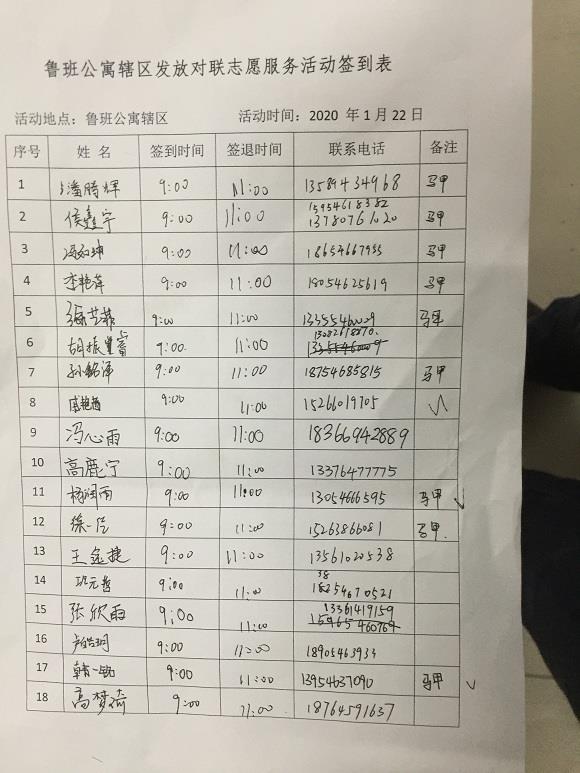 鲁班公寓辖区发放对联志愿服务活动签到表
活动地点：鲁班公寓辖区 活动时间：2020 年 1 月 22 日
序号 姓 名 签到时间 签退时间 联系电话 备注
1 潘腾辉 9:00 11:00 13589434968 马甲
15954618382
2 侯鑫宇 9:00 11:00 13780761020 马甲
3 9:00 11:00 18654667955 马甲
4 李艳萍 9:00 11:00 18054625619 马甲
5 张芷菲 9:00 11:00 马甲
6 9:00 11:00
7 孙铭泽 9:00 11:00 18754685815 马甲
8 9:00 11:00 15266019705
9 冯心雨 9:00 11:00 18366942889
10 高鹿宁 9:00 11:00 13376477775
11 杨润雨 9:00 11:00 13054666595 马甲
12 9:00 11:00 15263866081 马甲.
13 王金捷 9:00 11:00 13561020538
14 9:00 11:00 18254670521
13361419159
15 张欣雨 9:00 11:00
16 9:00 11:00 18905463933
17 9:00 11:00 13954637090 马甲
18 高梦 9:00 11:00 18764591637